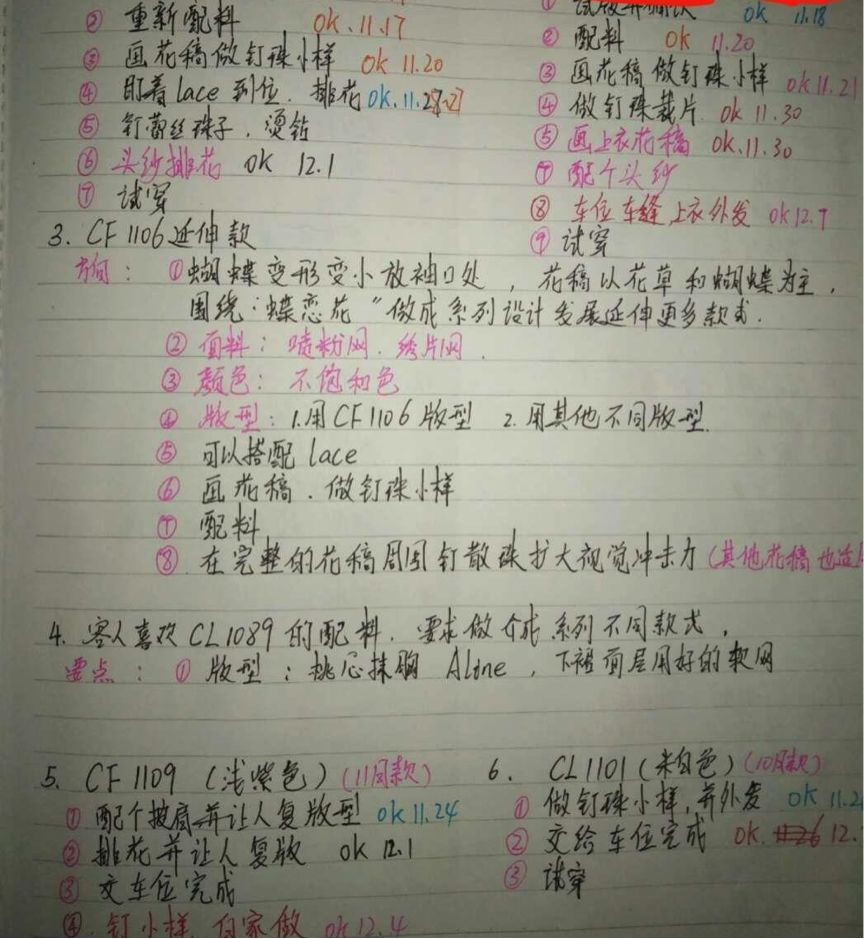 ② 重新配料 ok.11.17
③ 画花稿做钉珠小样 ok 11.20
④ 盯着lace到位.排花 ok.11.27
⑤ 钉蕾丝珠子，烫钻
⑥ 头纱排花 ok 12.1
⑦ 试穿
① 试版并确认 ok 11.18
② 配料 ok 11.20
③ 画花稿做钉珠小样 ok 11.21
④ 做钉珠裁片 ok 11.30
⑤ 画上衣花稿 ok.11.30
⑦ 配个头纱
⑧ 车位车缝,上衣外发 ok12.7
⑨ 试穿
3. CF 1106延伸款
方向：①蝴蝶变形变小放袖口处，花稿以花草和蝴蝶为主，
围绕:蝶恋花"做成系列设计发展延伸更多款式.
② 面料：喷粉网.绣片网.
③ 颜色：不饱和色
④ 版型：1.用CF1106版型 2.用其他不同版型.
⑤ 可以搭配lace
⑥ 画花稿.做钉珠小样
⑦ 配料
⑧.在完整的花稿周围钉散珠扩大视觉冲击力(其他花稿也适
4. 客人喜欢CL1089的配料.要求做个成系列不同款式，
要点：①版型：挑心抹胸 Aline，下裙面层用好的软网
5. CF 1109 (浅紫色) (11月款)
① 配个披肩并让人复版型 ok 11.24
② 排花并让人复版 ok 12.1
③ 交车位完成
④.钉小样.自家做 ok 12.4
6. CL1101(米白色) (10月款)
① 做钉珠小样,并外发 ok 11.2
② 交给车位完成 ok. 12.
③ 试穿